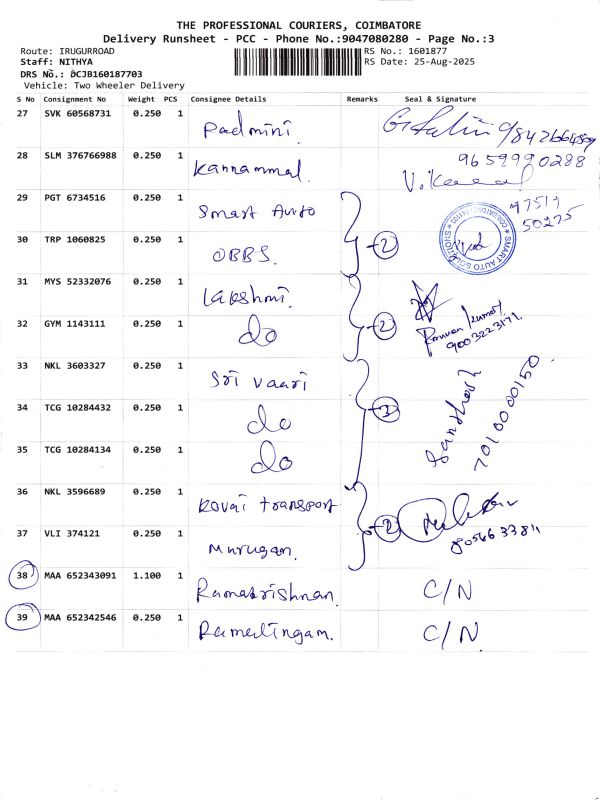 THE PROFESSIONAL COURIERS, COIMBATORE
Delivery Runsheet - PCC - Phone No.:9047080280 - Page No.:3
Route: IRUGURROAD RS No.: 1601877
Staff: NITHYA RS Date: 25-Aug-2025
DRS No.: DCJB160187703
Vehicle: Two Wheeler Delivery
S No Consignment No Weight PCS Consignee Details Remarks Seal & Signature
27 SVK 60568731 0.250 1 Padmini.
28 SLM 376766988 0.250 1 Kannammal. 9659990288
29 PGT 6734516 0.250 1 Smart Auto 97519 50275
30 TRP 1060825 0.250 1 OBBS. 2
SMART AUTO SOLUTIONS
31 MYS 52332076 0.250 1 Lakshmi.
32 GYM 1143111 0.250 1 do 2 9003223171
33 NKL 3603327 0.250 1 Sri Vaari
34 TCG 10284432 0.250 1 do 3 Santhosh 7010000150
35 TCG 10284134 0.250 1 do
36 NKL 3596689 0.250 1 Kovai transport 2
37 VLI 374121 0.250 1 Murugan.
38 MAA 652343091 1.100 1 Ramakrishnan. C/N
39 MAA 652342546 0.250 1 Ramalingam. C/N